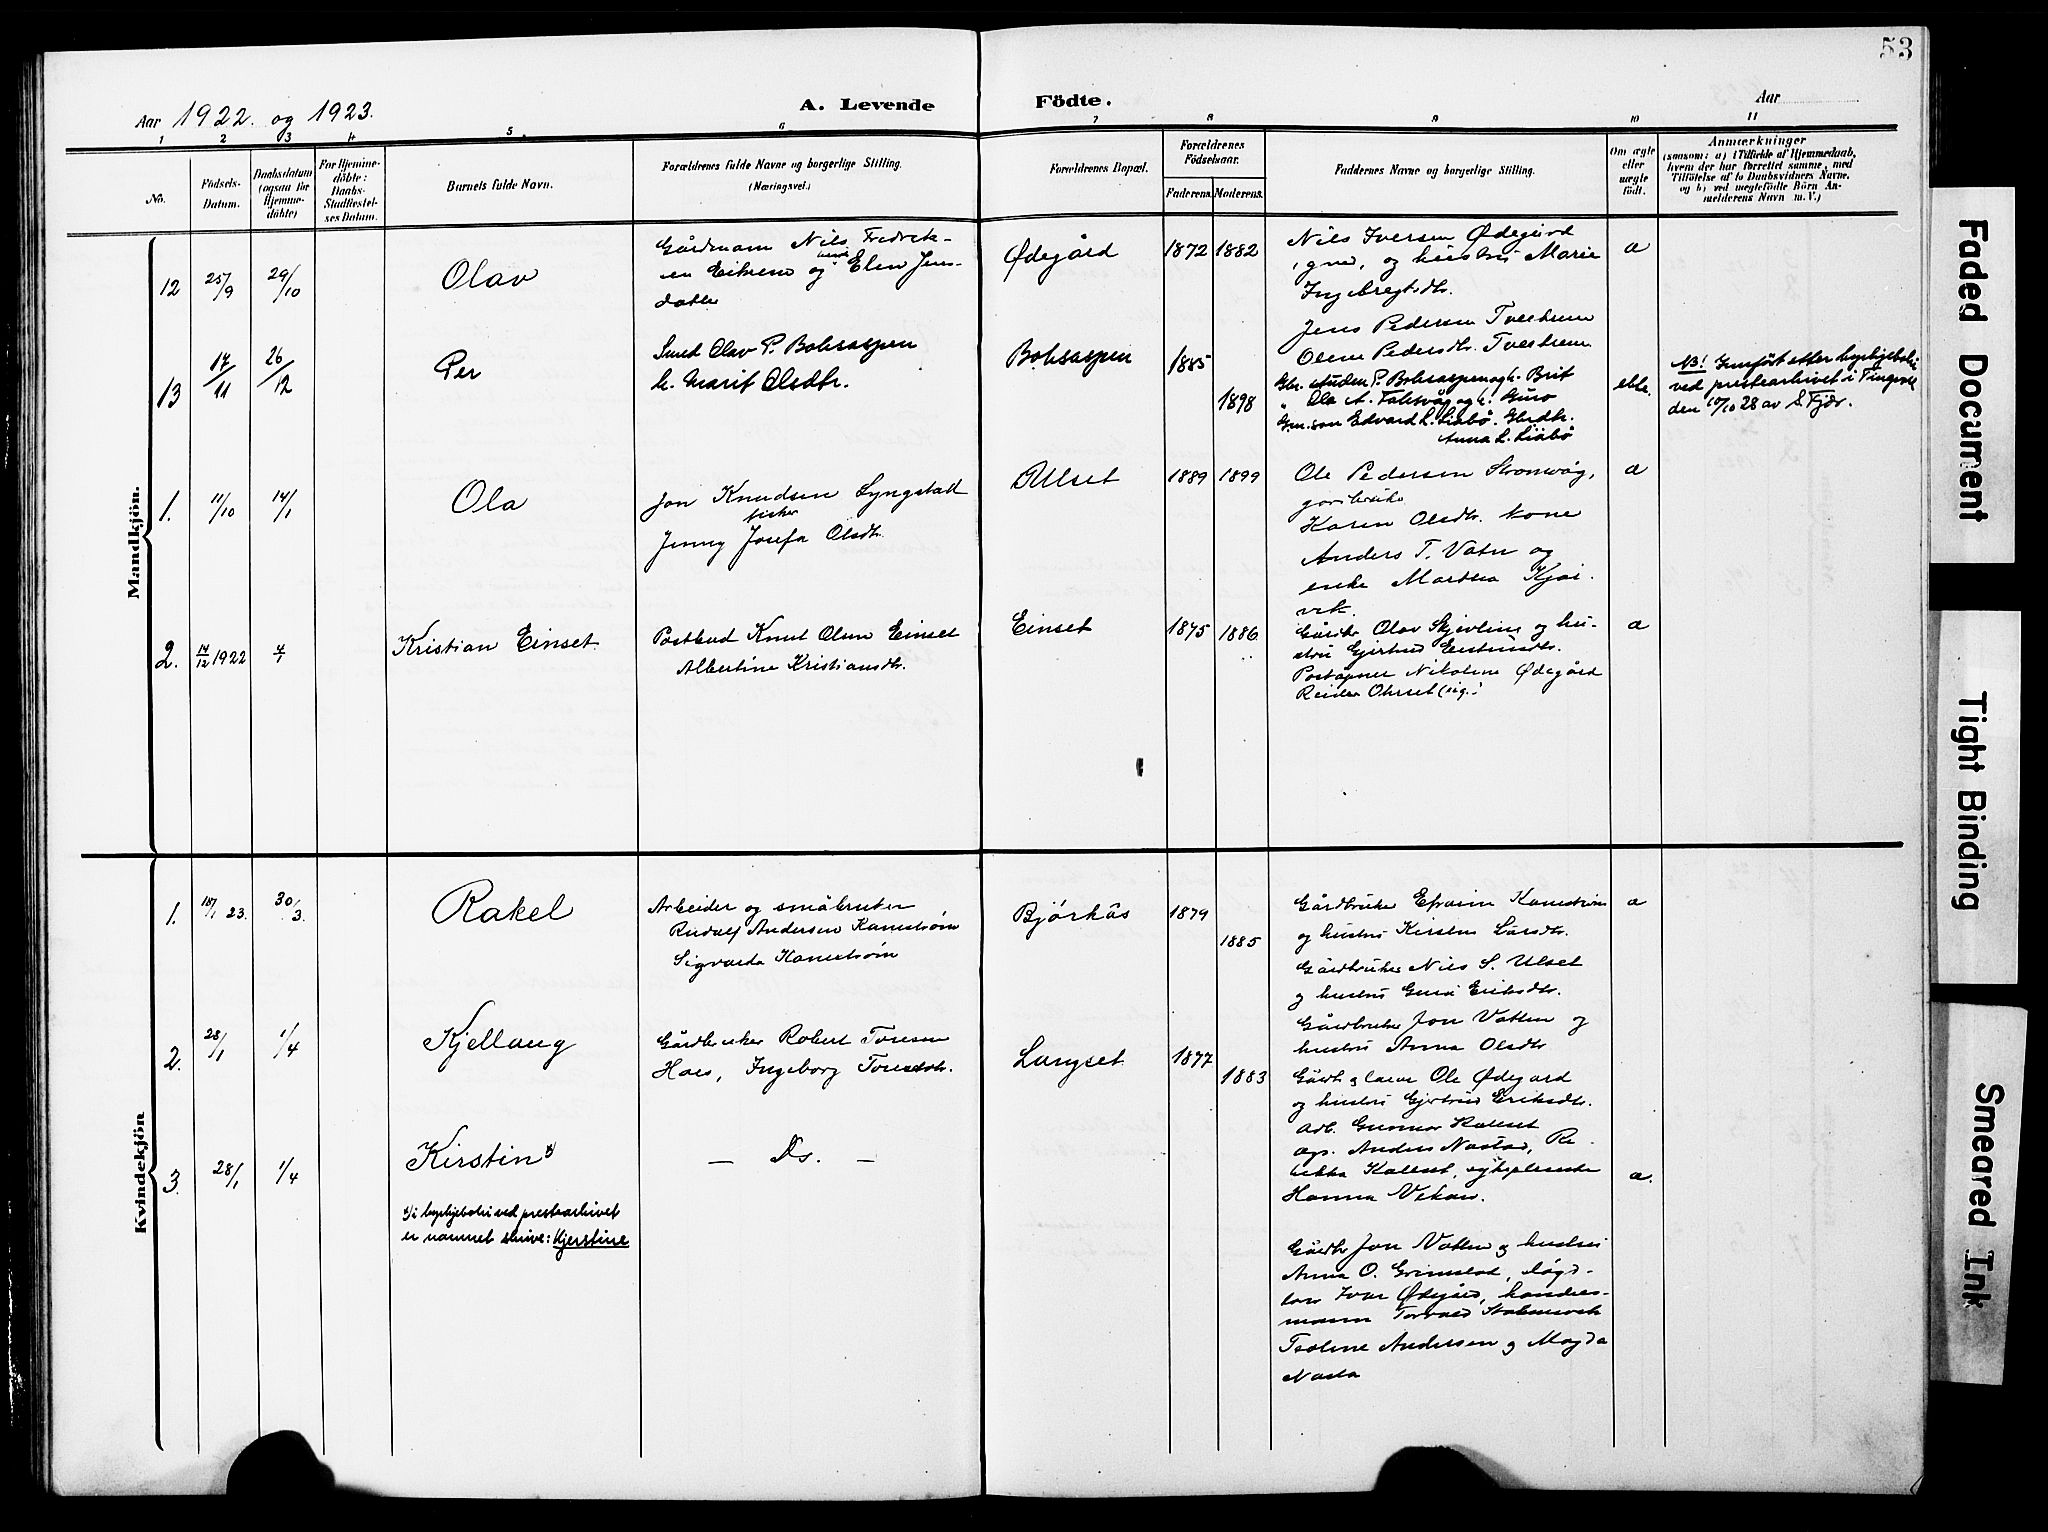 53
Aar 1922 og 1923.
A. Levende Födte.
Aar
1 2 3 4 5 6 7 8 9 10 11
No.
Födsels-
Datum.
Daabsdatum
(ogsaa for
Hjemme-
döbte)
For Hjemme-
döbte:
Daabs-
Stadfæstel-
ses Datum.
Barnets fulde Navn.
Forældrenes fulde Navne og borgerlige Stilling.
(Næringsvei.)
Forældrenes Bopæl.
Forældrenes
Födselsaar.
Faderens.
Moderens.
Faddernes Navne og borgerlige Stilling.
Om ægte
eller
uægte
födt.
Anmærkninger
(saasom: a) i Tilfælde af Hjemmedaab,
hvem der har forrettet samme, med
Tilföielse af to Daabsvidners Navne,
og b) ved uægtefödte Börn An-
melderens Navn m. V.)
Mandkjön.
12 25/9 29/10
Olav
Gårdmann Nils Fredrik-
sen Eikrem og Elen Jens-
datter
Ødegård
1872 1882
Nils Iversen Ødegård
, gm, og hustru Marie
Ingebregtsdtr.
Jens Pedersen Tvestrem
Olene Pedersdtr. Tvestrem
a
13 17/11 26/12
Per
Smed Olav P. Boksaspen
h. Marit Olsdtr.
Boksaspen
1885
1898
Gbr. Auden P. Boksaspen og h. Brit
" Ola A. Falksvåg og h. Guro
Gm. son Edvard L. Liabö. Gbrdtr.
Anna L. Liabö
ekte.
NB! Innfört etter kyrkjeboki
ved prestearkivet i Tingvoll
den 10/10 28 av S. Fjær.
1. 11/10 14/1
Ola
Jon Knudsen Lyngstad
fisker
Jenny Josefa Olsdtr.
Ulset
1889 1899
Ole Pedersen Stromvåg,
gardbruker
Karen Olsdtr. kone
Anders T. Vatn og
enke Martha Kjøl-
vik.
a
2. 14/12 1922 4/1
Kristian Einset.
Postbud Knut Olsen Einset
Albertine Kristiansdtr.
Einset
1875 1886
Gårdbr Olav Skjevling og hu-
stru Gjertrud Eistensdtr.
Poståpner Nikoline Ødegård
Reidar Ohrset (ug.)
a
Kvindekjön
1. 18/1 23. 30/3.
Rakel
Arbeider og småbruker
Rudolf Andersen Kamstrøm
Sigvarda Kamstrøm
Bjørkås
1879
1885
Gårdbruker Efraim Kamstrøm
og hustru Kirsten Larsdtr.
Gårdbruker Nils S. Ulset
og hustru Guri Eriksdtr.
a
2. 28/1 1/4
Kjellaug
Gårdbruker Robert Toresen
Hoes, Ingeborg Toresdtr.
Langset
1877
1883
Gårdbruker Jon Vatten og
hustru Anna Olsdtr
Gårdb. og lærer Ole Ødegard
og hustru Gjertrud Eriksdtr.
arb. Gunnar Kalset
ags. Anders Nastad, Re-
bekka Kalset, sykepleierske
Hanna Vikan.
3. 28/1 1/4
Kirstin x)
— Ds. —
a.
x) i kyrkjeboki ved prestearkivet
er namnet skrive: Kjerstine
Gårdbr Jon Vatten og hustru
Anna O. Grimstad, døgd-
Ivar Ødegård, handels-
mann Torvald
Tomine Andersen og Magda
Nasta
Faded Document
Tight Binding
Smeared Ink